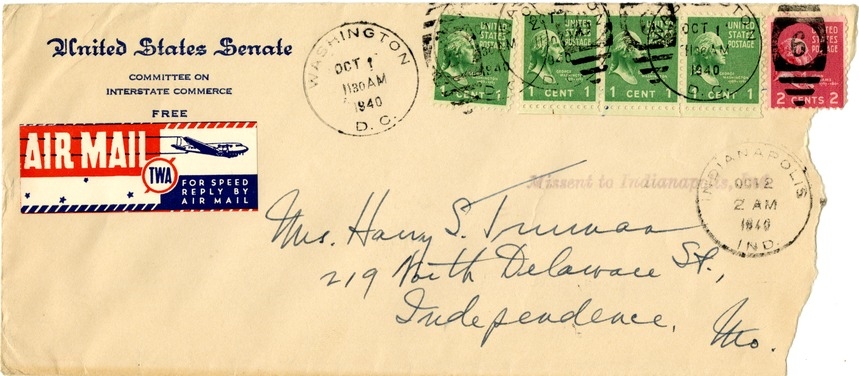 United States Senate
COMMITTEE ON
INTERSTATE COMMERCE
FREE
AIR MAIL
TWA
FOR SPEED
REPLY BY
AIR MAIL
WASHINGTON
OCT 1
1130AM
1940
D. C.
UNITED
STATES
POSTAGE
1 CENT 1
UNITED
STATES
POSTAGE
1 CENT 1
UNITED
STATES
POSTAGE
1 CENT 1
UNITED
STATES
POSTAGE
1 CENT 1
OCT 1
1130AM
1940
UNITED
STATES
POSTAGE
2 CENTS 2
Missent to Indianapolis,
INDIANAPOLIS
OCT 2
2 AM
1940
IND.
Mrs. Harry S. Truman
219 North Delaware St.,
Independence,
Mo.